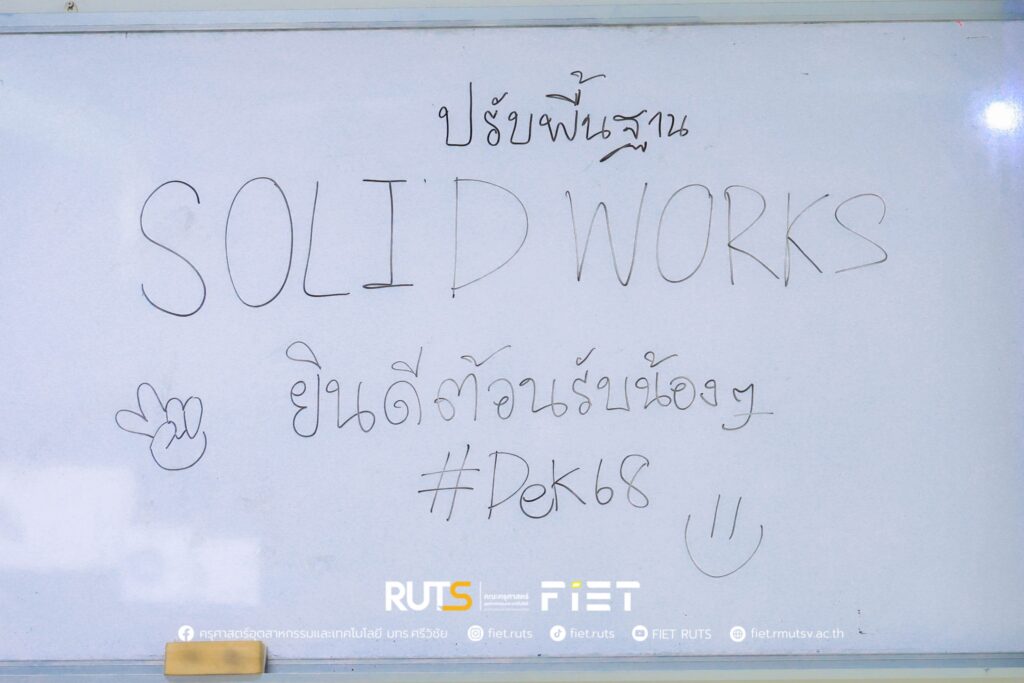 ปรับพื้นฐาน
SOLID WORKS
ยินดีต้อนรับน้องๆ
#Dek68
RUTS คณะครุศาสตร์ FIET
ครุศาสตร์อุตสาหกรรมและเทคโนโลยี มทร.ศรีวิชัย fiet.ruts fiet.ruts FIET RUTS fiet.rmutsv.ac.th